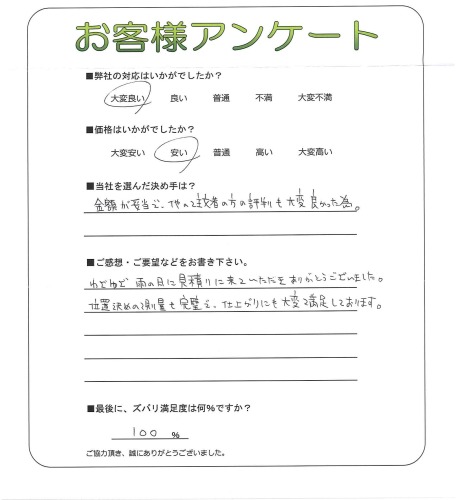 お客様アンケート
■弊社の対応はいかがでしたか？
大変良い 良い 普通 不満 大変不満
■価格はいかがでしたか？
大変安い 安い 普通 高い 大変高い
■当社を選んだ決め手は？
金額が妥当で、他の業者の方の評判も大変良かった為。
■ご感想・ご要望などをお書き下さい。
わざわざ雨の日に見積りに来ていただきありがとうございました。
位置決めの測量も完璧で、仕上がりにも大変満足しております。
■最後に、ズバリ満足度は何％ですか？
100 %
ご協力頂き、誠にありがとうございました。